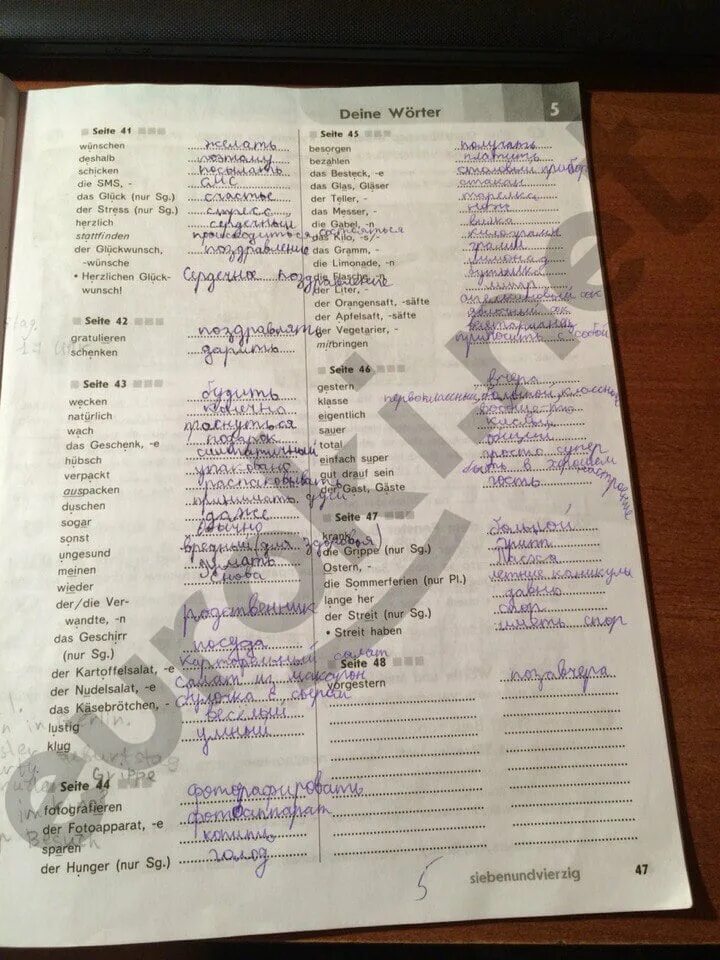 Deine Wörter 5
Seite 41
wünschen желать
deshalb поэтому
schicken посылать
die SMS, - СМС
das Glück (nur Sg.) счастье
der Stress (nur Sg.) стресс
herzlich сердечный
stattfinden
der Glückwunsch, поздравление
-wünsche
• Herzlichen Glück- Сердечное поздравление
wunsch!
Seite 42
gratulieren поздравлять
schenken дарить
Seite 43
wecken будить
natürlich конечно
wach проснуться
das Geschenk, -e подарок
hübsch симпатичный
verpackt упаковано
auspacken распаковывать
duschen принимать душ
sogar даже
sonst обычно
ungesund вредный для здоровья
meinen думать
wieder снова
der/die Ver- родственник
wandte, -n
das Geschirr посуда
(nur Sg.)
der Kartoffelsalat, -e картофельный салат
der Nudelsalat, -e салат из макарон
das Käsebrötchen, - булочка с сыром
lustig весёлый
klug умный
Seite 44
fotografieren фотографировать
der Fotoapparat, -e фотоаппарат
sparen копить
der Hunger (nur Sg.) голод
Seite 45
besorgen получать
bezahlen платить
das Besteck, -e столовый прибор
das Glas, Gläser стакан
der Teller, - тарелка
das Messer, - нож
die Gabel, -n вилка
das Kilo, -s/- килограмм
das Gramm, - грамм
die Limonade, -n лимонад
die Flasche, -n бутылка
der Liter, - литр
der Orangensaft, -säfte апельсиновый сок
der Apfelsaft, -säfte яблочный сок
der Vegetarier, - вегетарианец
mitbringen приносить с собой
Seite 46
gestern вчера
klasse
eigentlich
sauer кислый
total
einfach super просто супер
gut drauf sein быть в хорошем настроении
der Gast, Gäste гость
Seite 47
krank больной
die Grippe (nur Sg.) грипп
Ostern, - Пасха
die Sommerferien (nur Pl.) летние каникулы
lange her давно
der Streit (nur Sg.) спор
• Streit haben иметь спор
Seite 48
vorgestern позавчера
5
siebenundvierzig 47
euroki.net